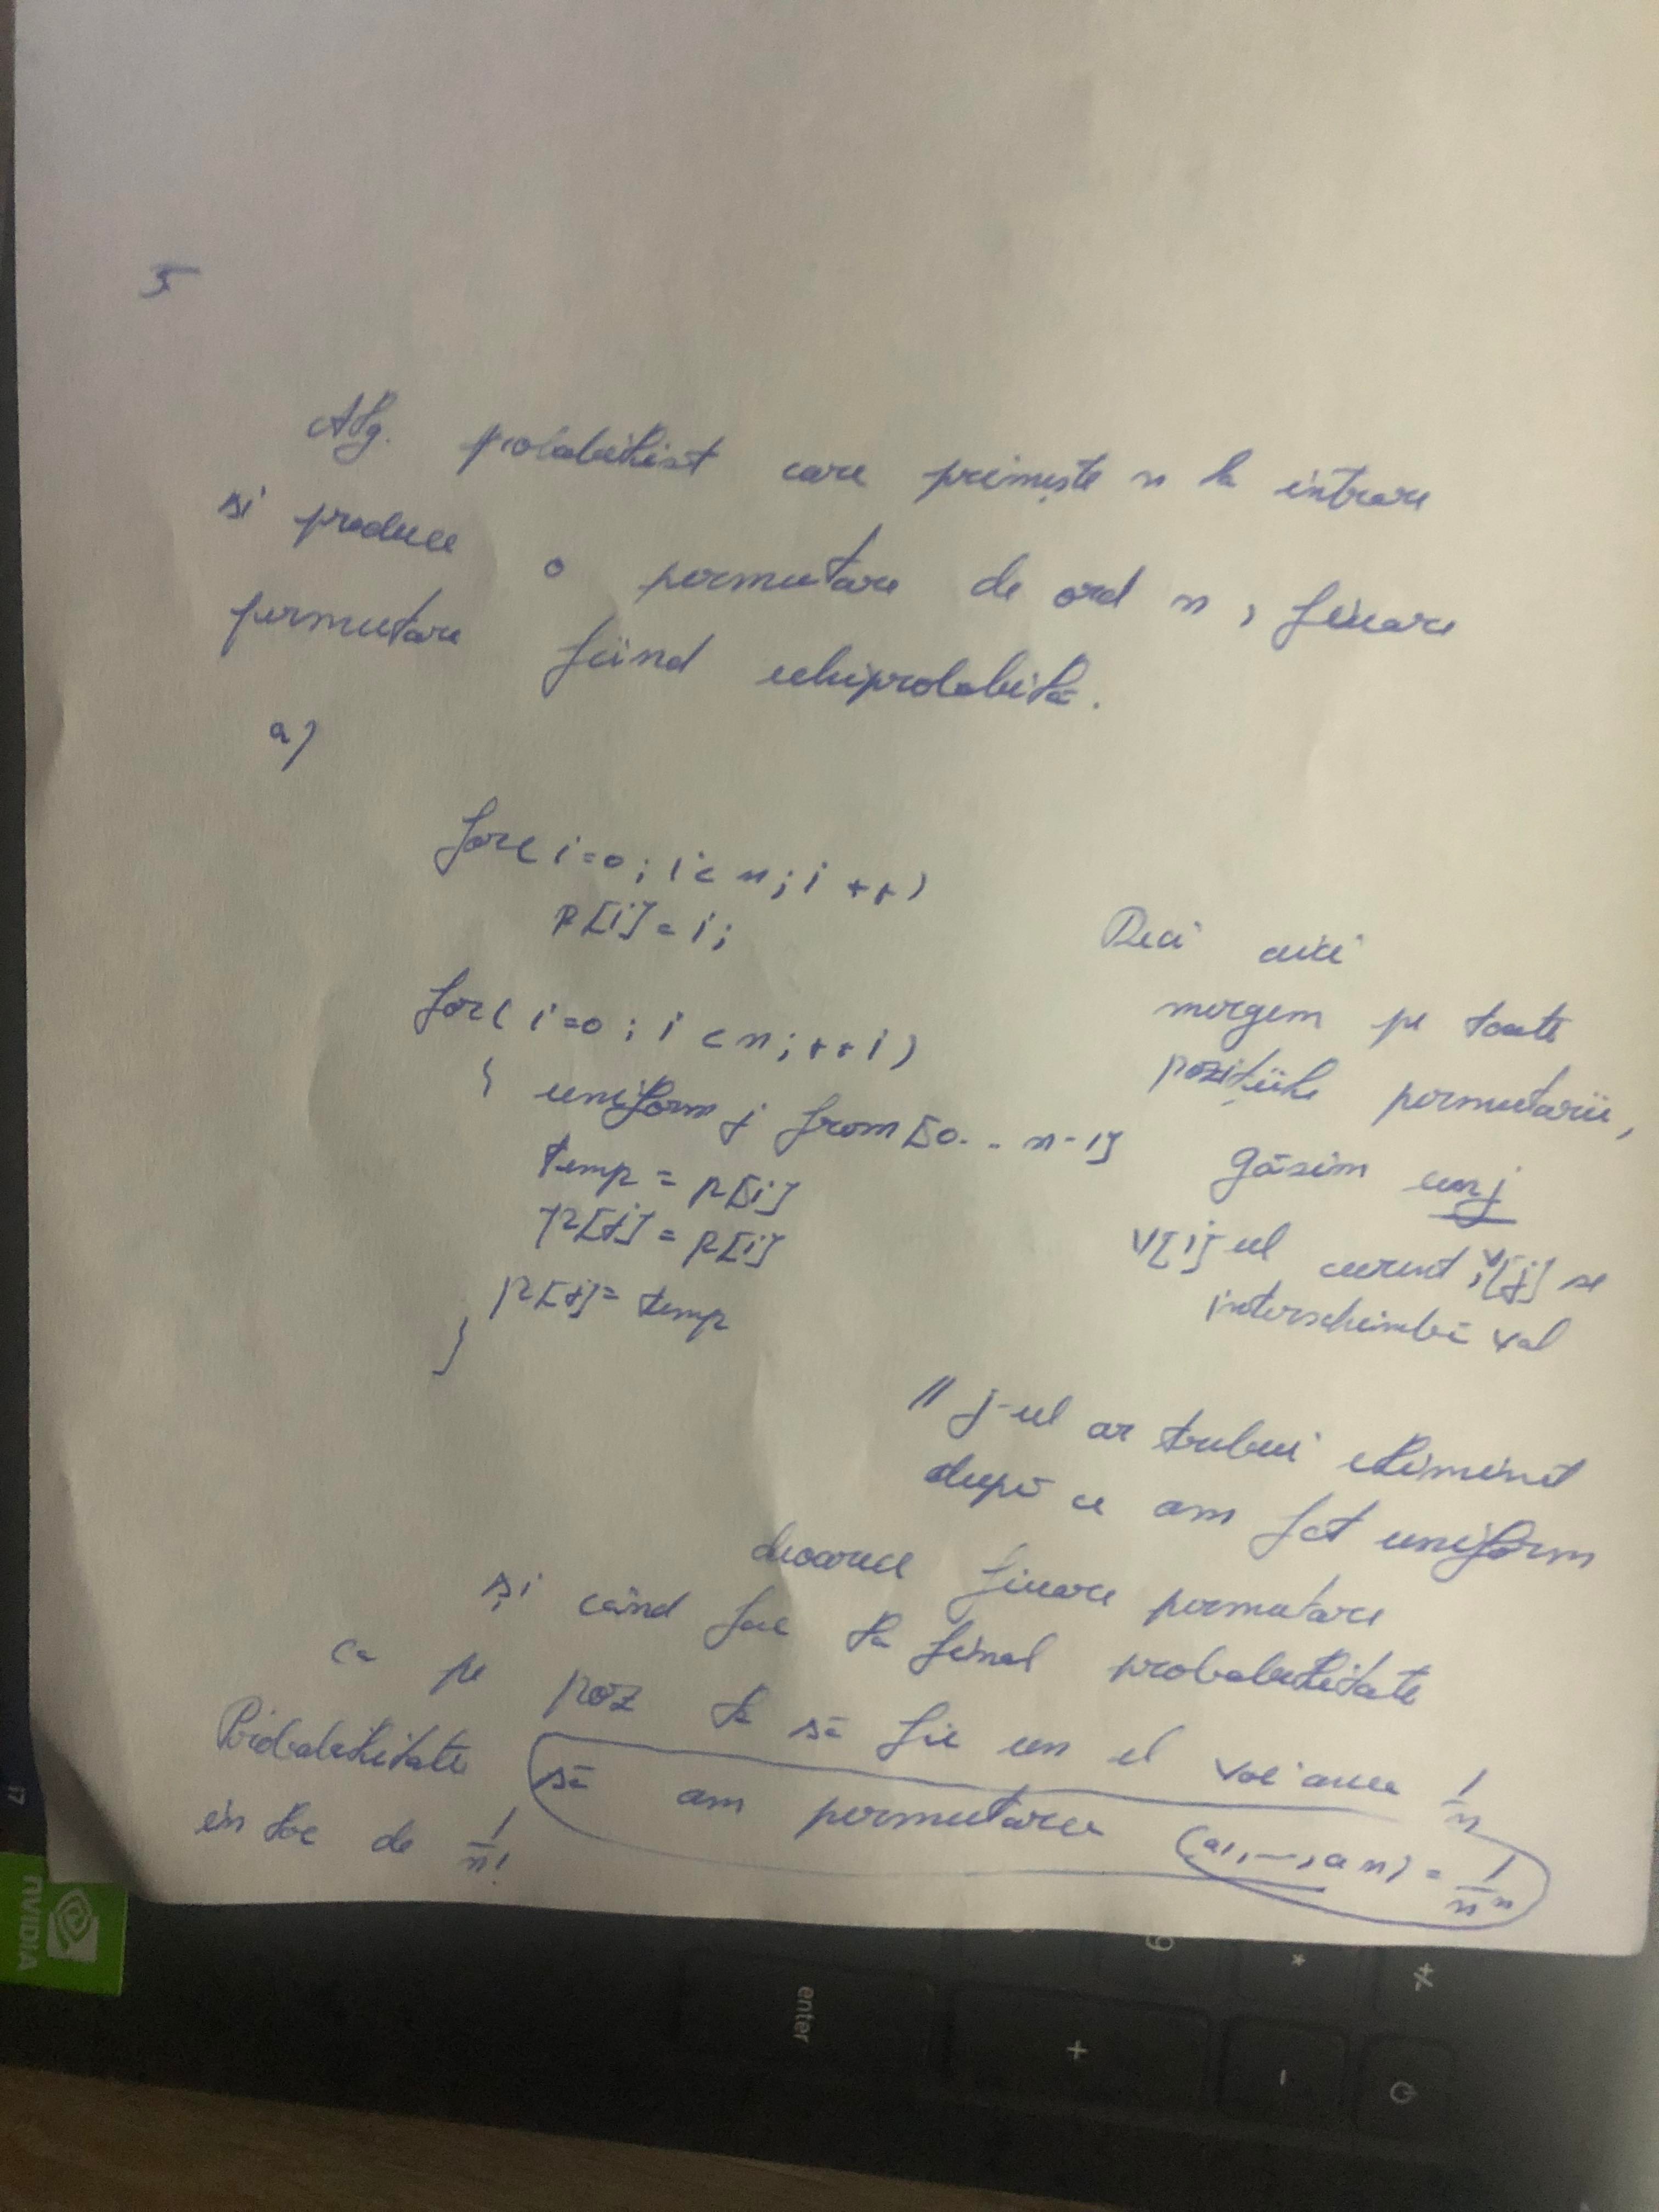 5
Alg. probabilist care primește n la intrare
și produce o permutare de ord n, fiecare
permutare fiind echiprobabilă.
a)
for(i=0; i<n; i++)
p[i]=i;
for(i=0; i<n; ++i)
{ uniform j from [0.. n-1]
temp = p[i]
p[j] = p[i]
p[j] = temp
}
Deci aici
mergem pe toate
pozițiile permutării,
găsim un j
v[i]-ul curent, v[j] se
interschimbă val
// j-ul ar trebui eliminat
după ce am fct uniform
deoarece fiecare permutare
și când fac la final probabilitate
ca pe poz să fie un el voi avea 1/n
Probabilitate să am permutarea (a1,...,an) = 1/n^n
în loc de 1/n!
nVIDIA
enter
+
-
*
17